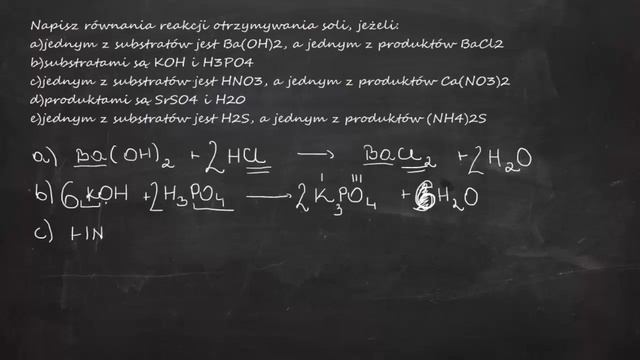 Napisz równania reakcji otrzymywania soli, jeżeli:
a)jednym z substratów jest Ba(OH)2, a jednym z produktów BaCl2
b)substratami są KOH i H3PO4
c)jednym z substratów jest HNO3, a jednym z produktów Ca(NO3)2
d)produktami są SrSO4 i H2O
e)jednym z substratów jest H2S, a jednym z produktów (NH4)2S
a) Ba(OH)₂ + 2HCl → BaCl₂ + 2H₂O
I III
b) 6KOH + 2H₃PO₄ → 2K₃PO₄ + 6H₂O
c) HN